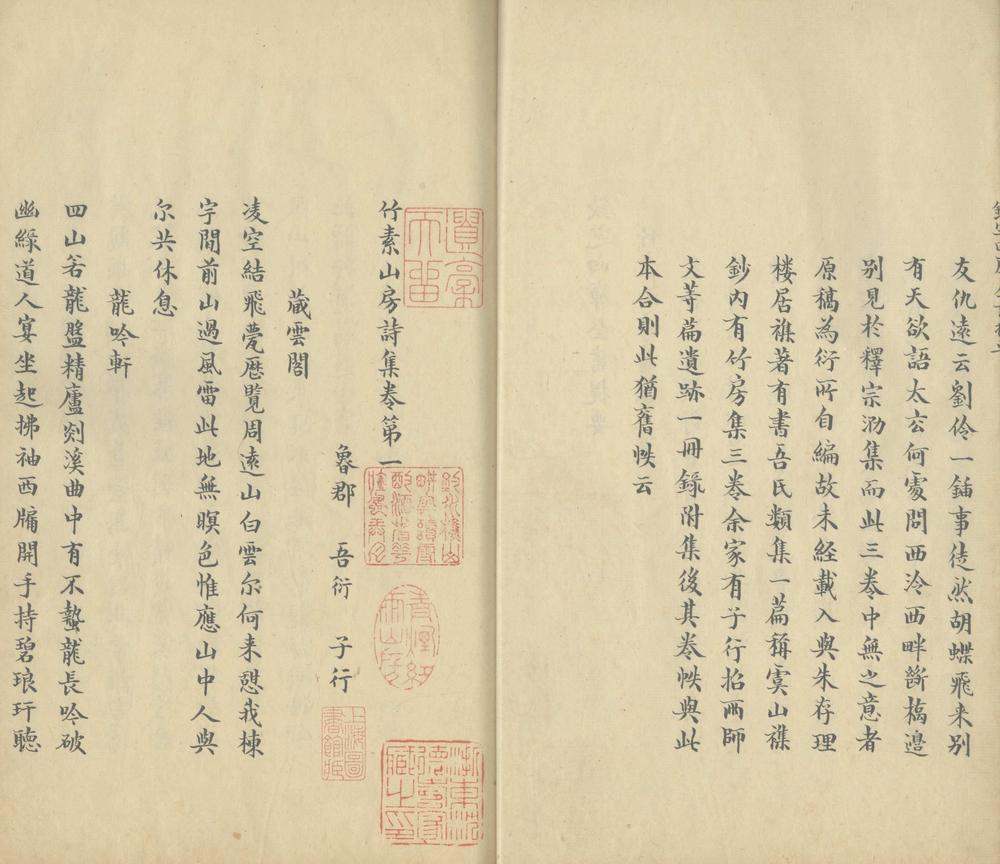 友仇遠云劉伶一鍤事徒然胡蝶飛来別
有天欲語太玄何處問西泠西畔斷橋邉
別見扵釋宗泐集而此三卷中無之意者
原稿為衍所自編故未經載入與朱存理
楼居襍著有書吾氏類集一篇稱虞山襍
鈔内有竹房集三卷余家有子行招雨師
文等篇遺跡一冊錄附集後其卷帙與此
本合則此猶舊帙云
竹素山房詩集卷第一
魯郡 吾衍 子行
藏雲閣
凌空結飛甍歷覽周遠山白雲尔何来憇我棟
宇間前山過風雷此地無暝色惟應山中人與
尔共休息
龍吟軒
四山若龍盤精廬剡溪曲中有不蟄龍長吟破
幽綠道人宴坐起拂袖西牖開手持碧琅玕聽
上海圖
書館藏